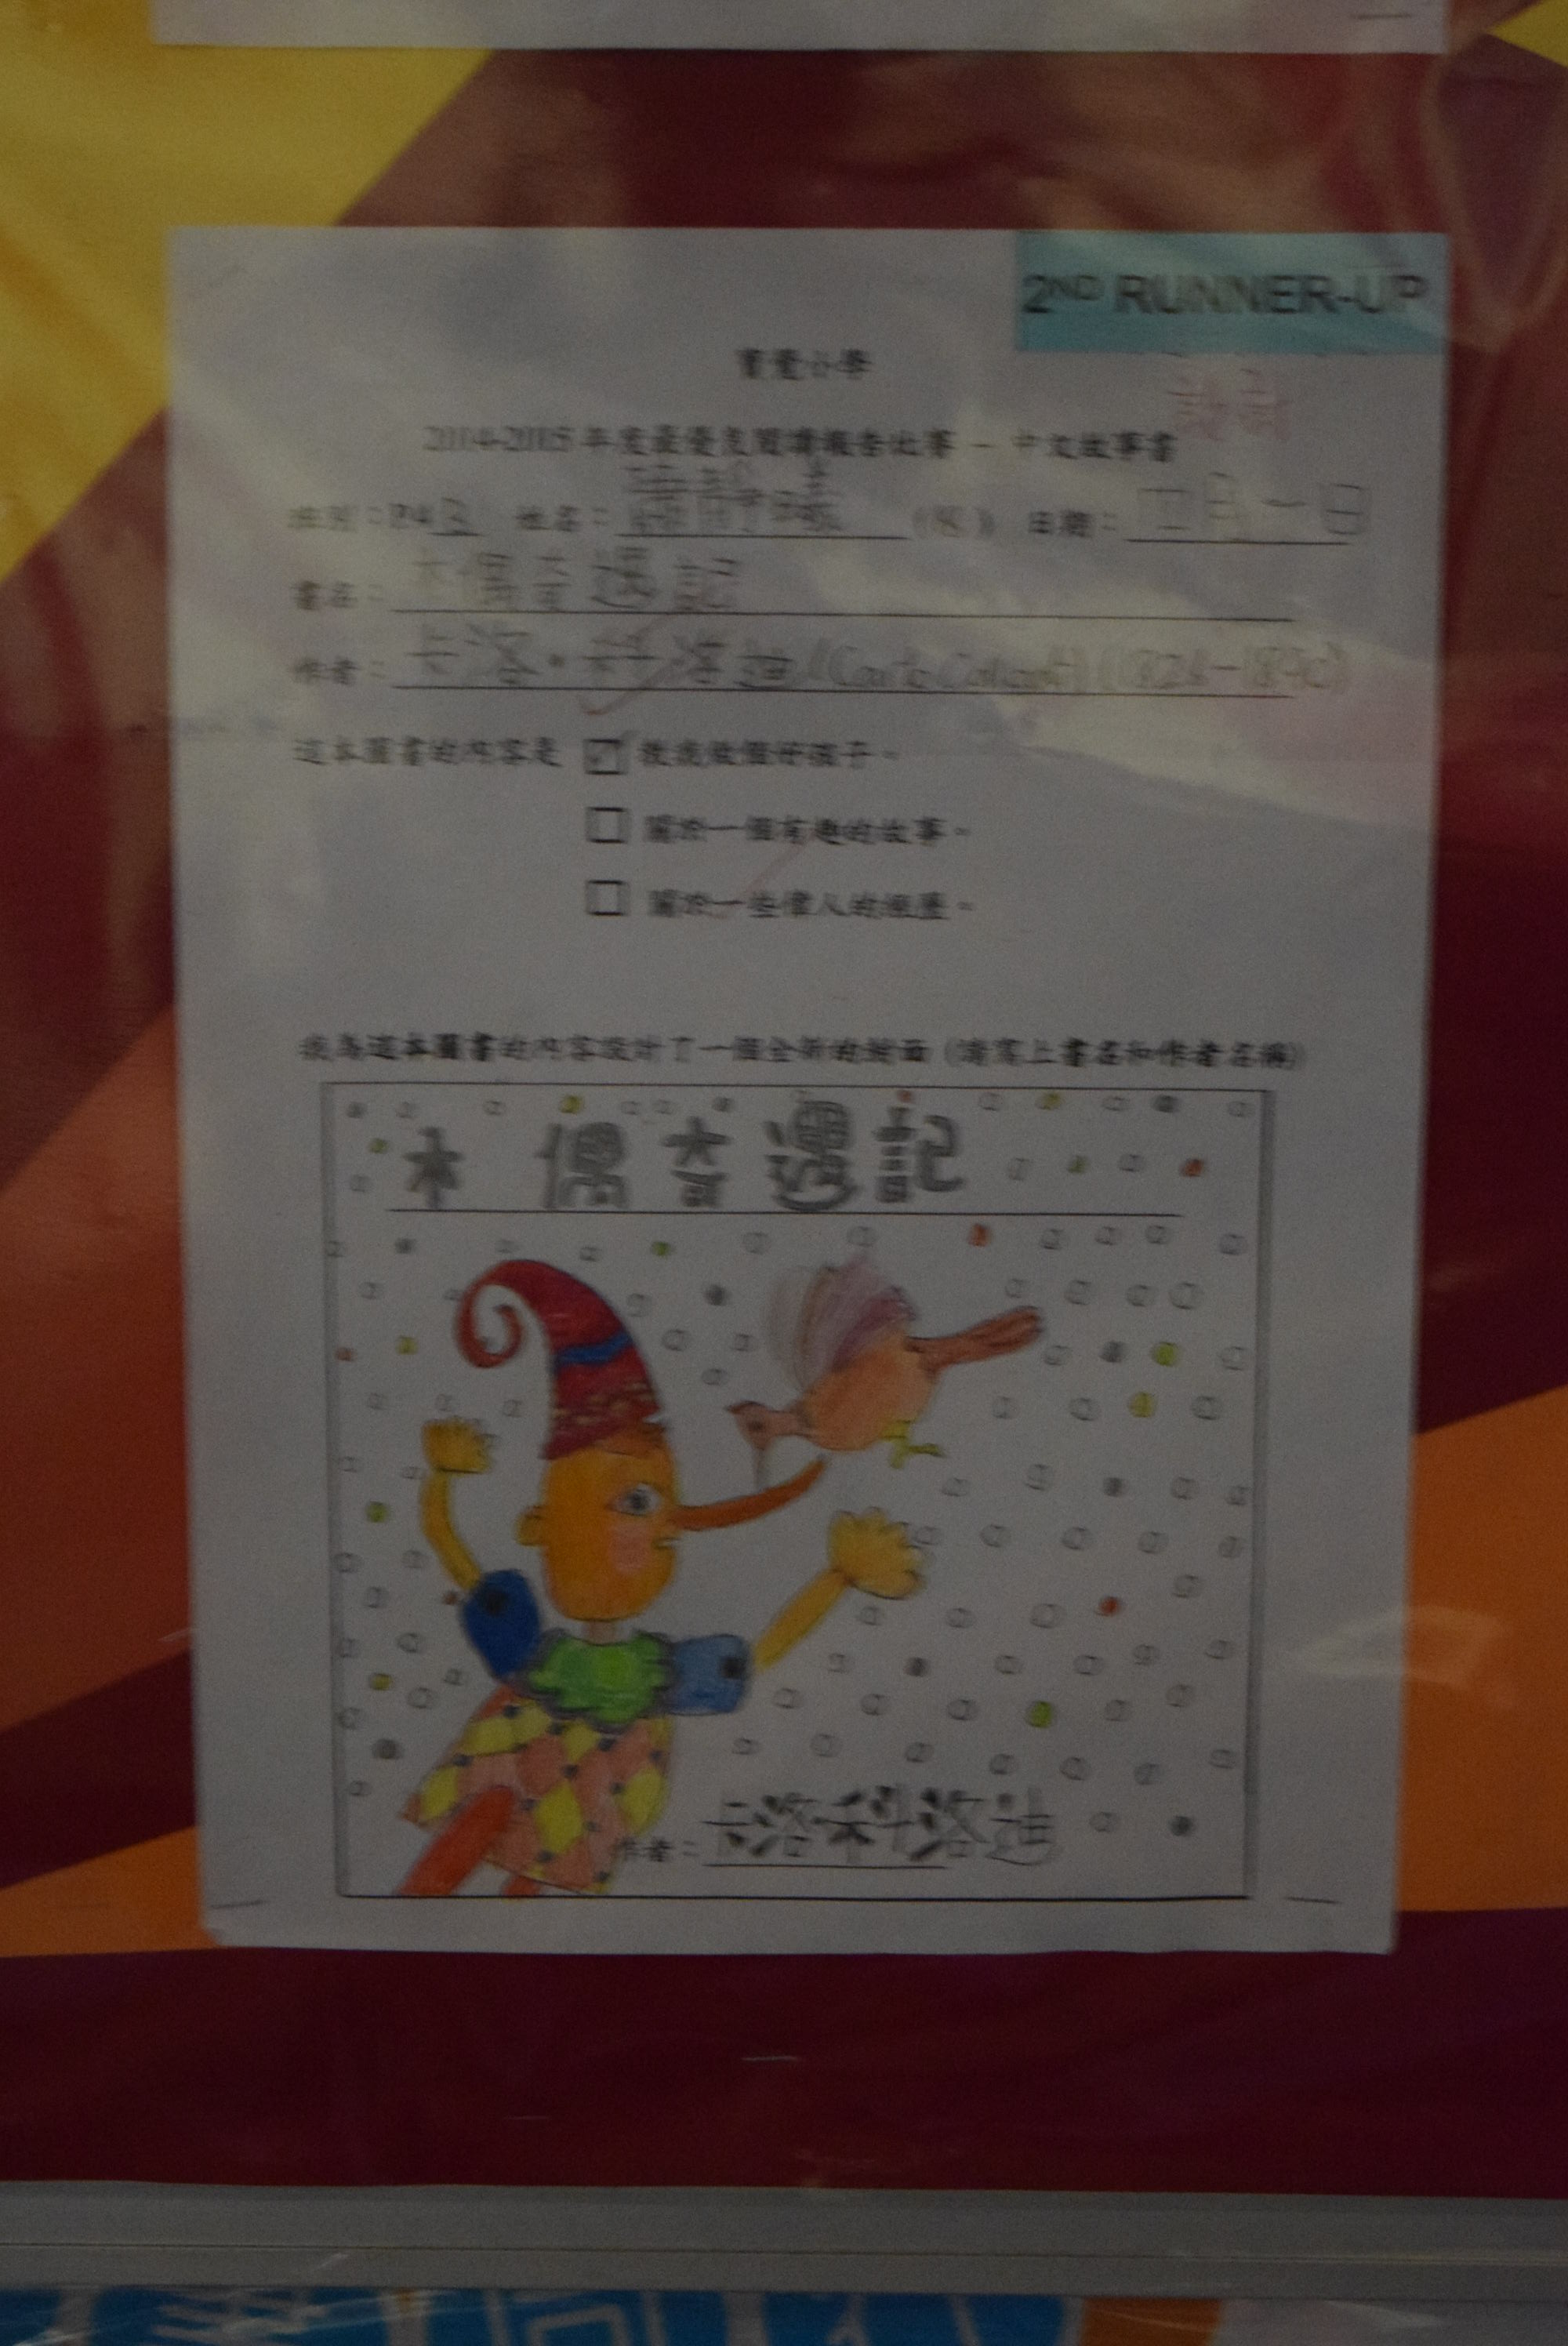 2ND RUNNER-UP
寶覺小學
2014-2015 年度最優良閱讀報告比賽 - 中文故事書
班別：P.4B 姓名： 靜 ( ) 日期： 月一日
書名：木偶奇遇記
作者：卡洛·科洛迪 (Carlo Collodi) (1826-1890)
這本圖書的內容是 ☑ 教我做個好孩子。
☐ 關於一個有趣的故事。
☐ 關於一些偉人的經歷。
我為這本圖書的內容設計了一個全新的封面 (請寫上書名和作者名稱)
木偶奇遇記
作者：卡洛科洛迪